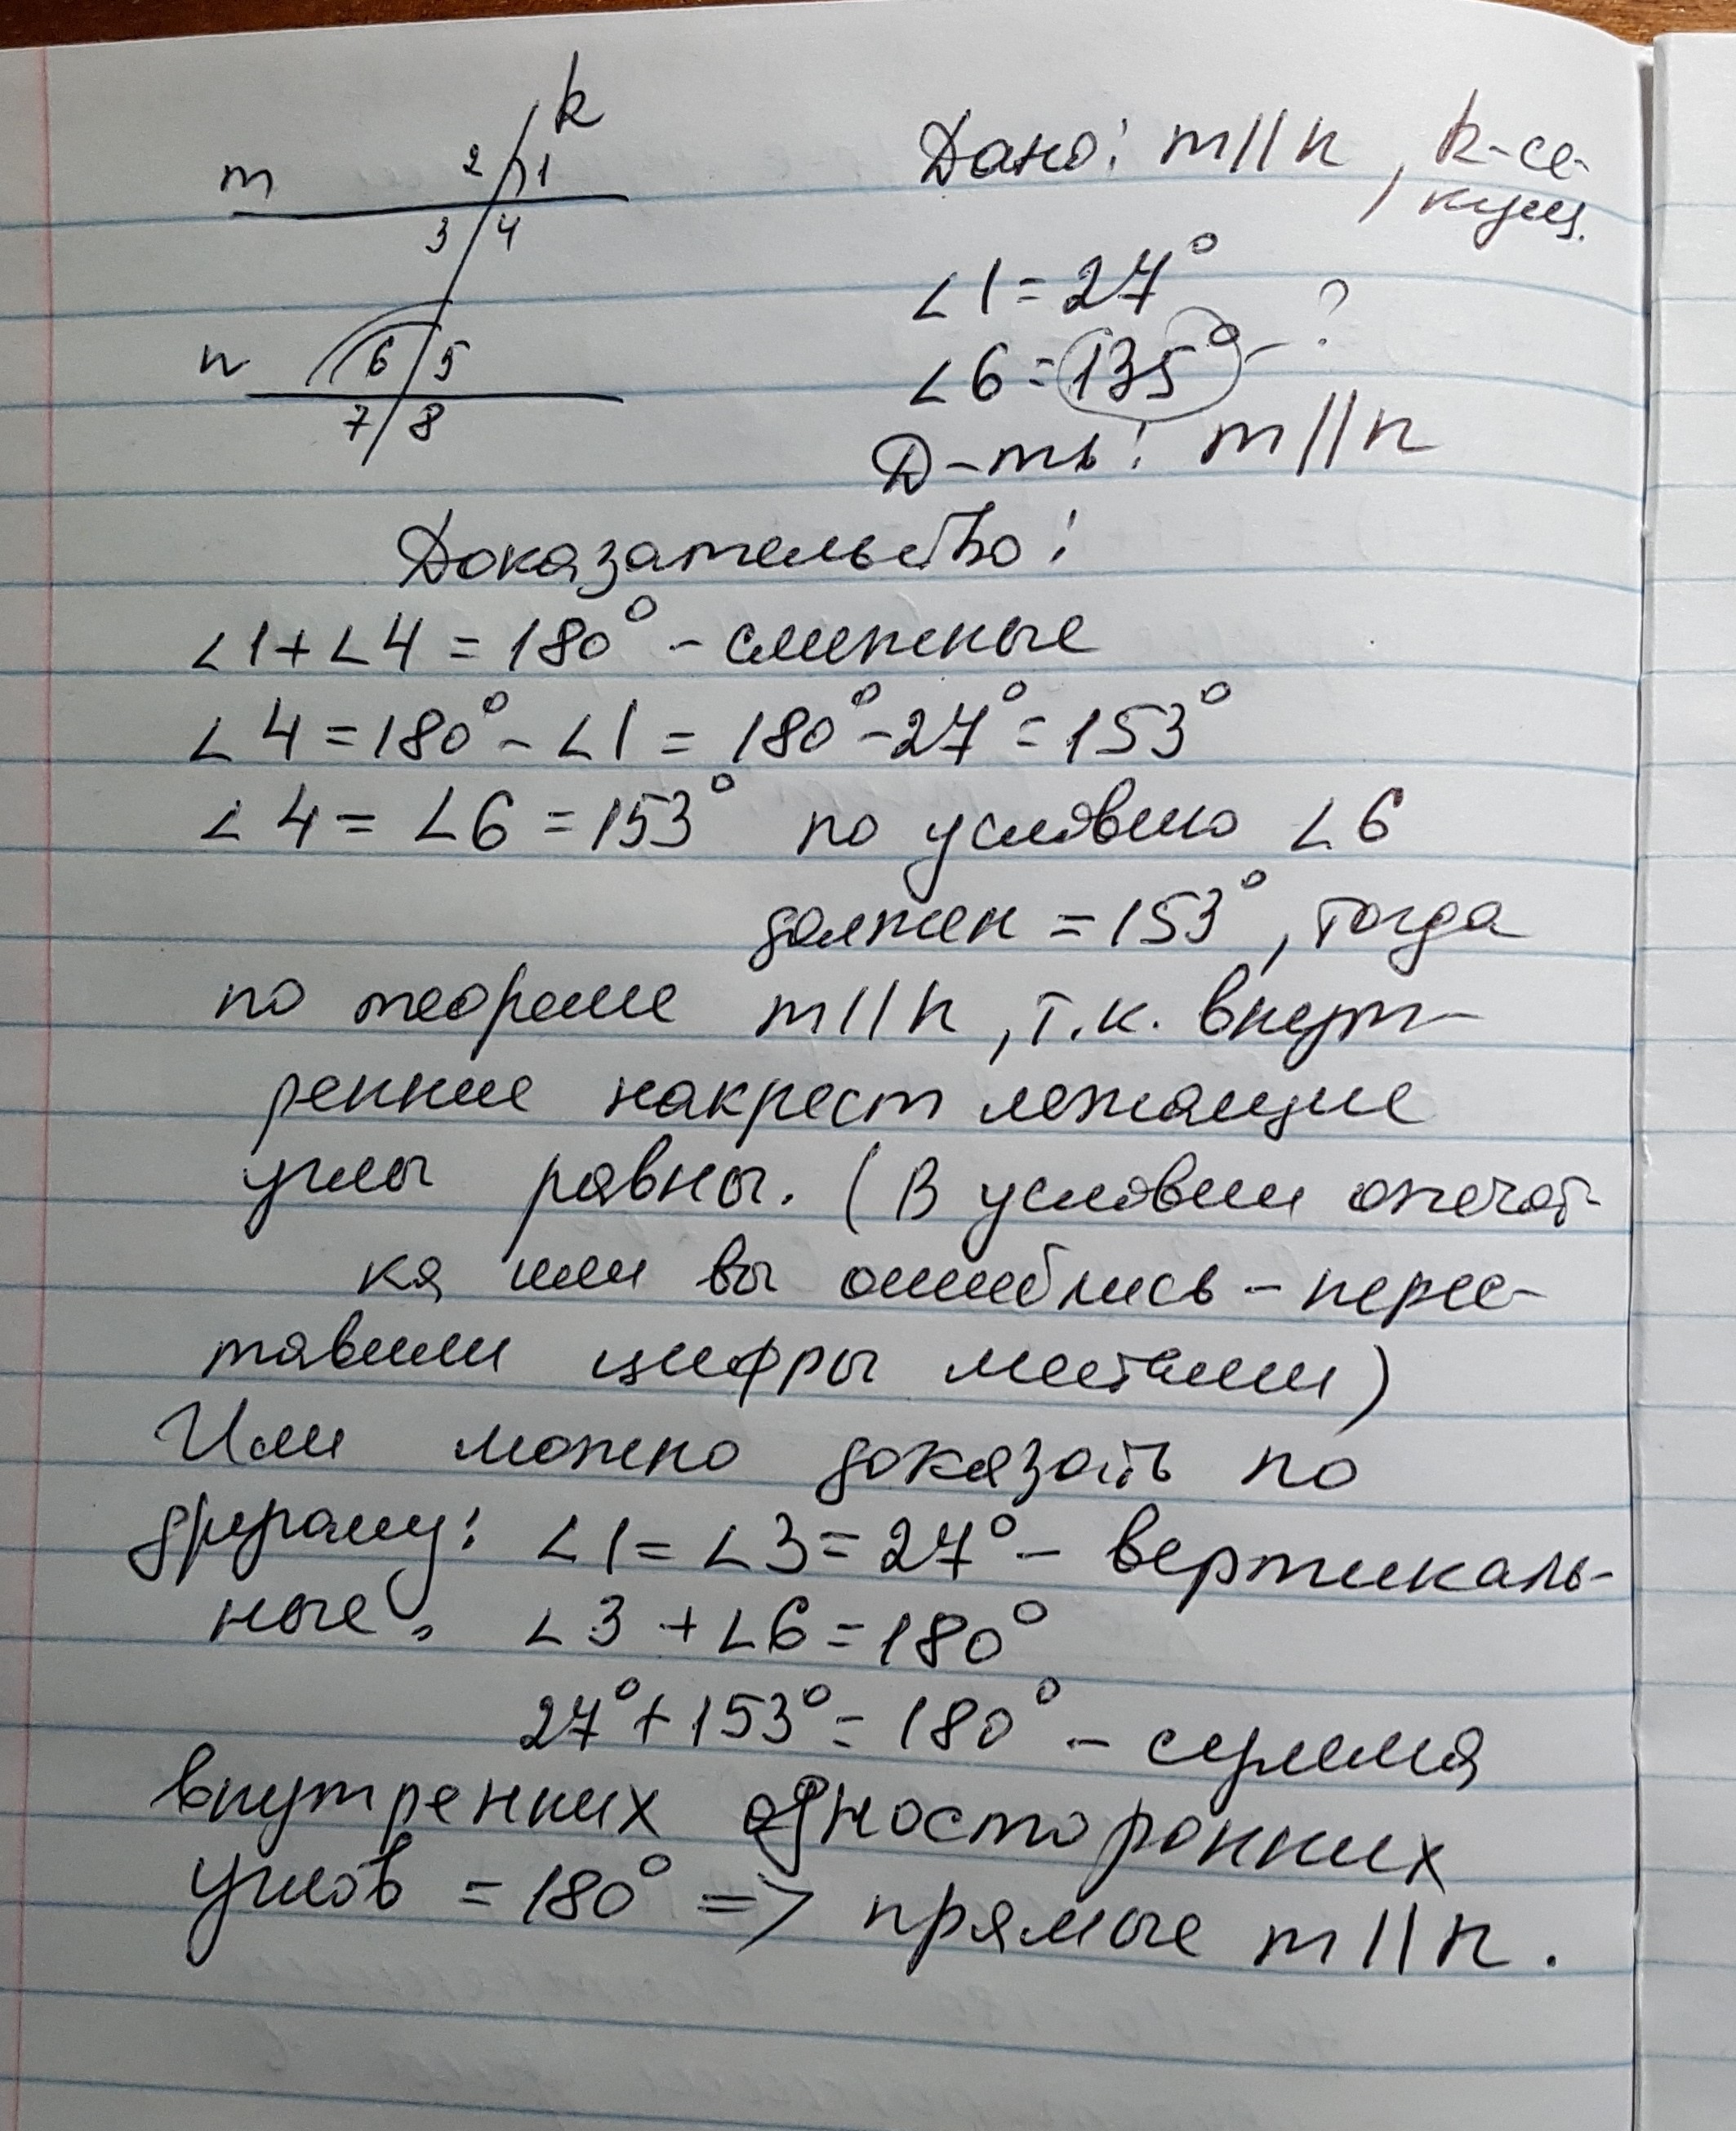 k
m 2 1
3 4
n 6 5
7 8
Дано: m||n, k-се-
кущ.
∠1=27°
∠6=135° - ?
Д-ть: m||n
Доказательство:
∠1+∠4=180° - смежные
∠4=180°-∠1=180°-27°=153°
∠4=∠6=153° по условию ∠6
должен =153°, тогда
по теореме m||n, т.к. внут-
ренние накрест лежащие
углы равны. (В условии опечат-
ка или вы ошиблись - перес-
тавили цифры местами)
Или можно доказать по
другому: ∠1=∠3=27° - вертикаль-
ные. ∠3+∠6=180°
27°+153°=180° - сумма
внутренних односторонних
углов =180° => прямые m||n.